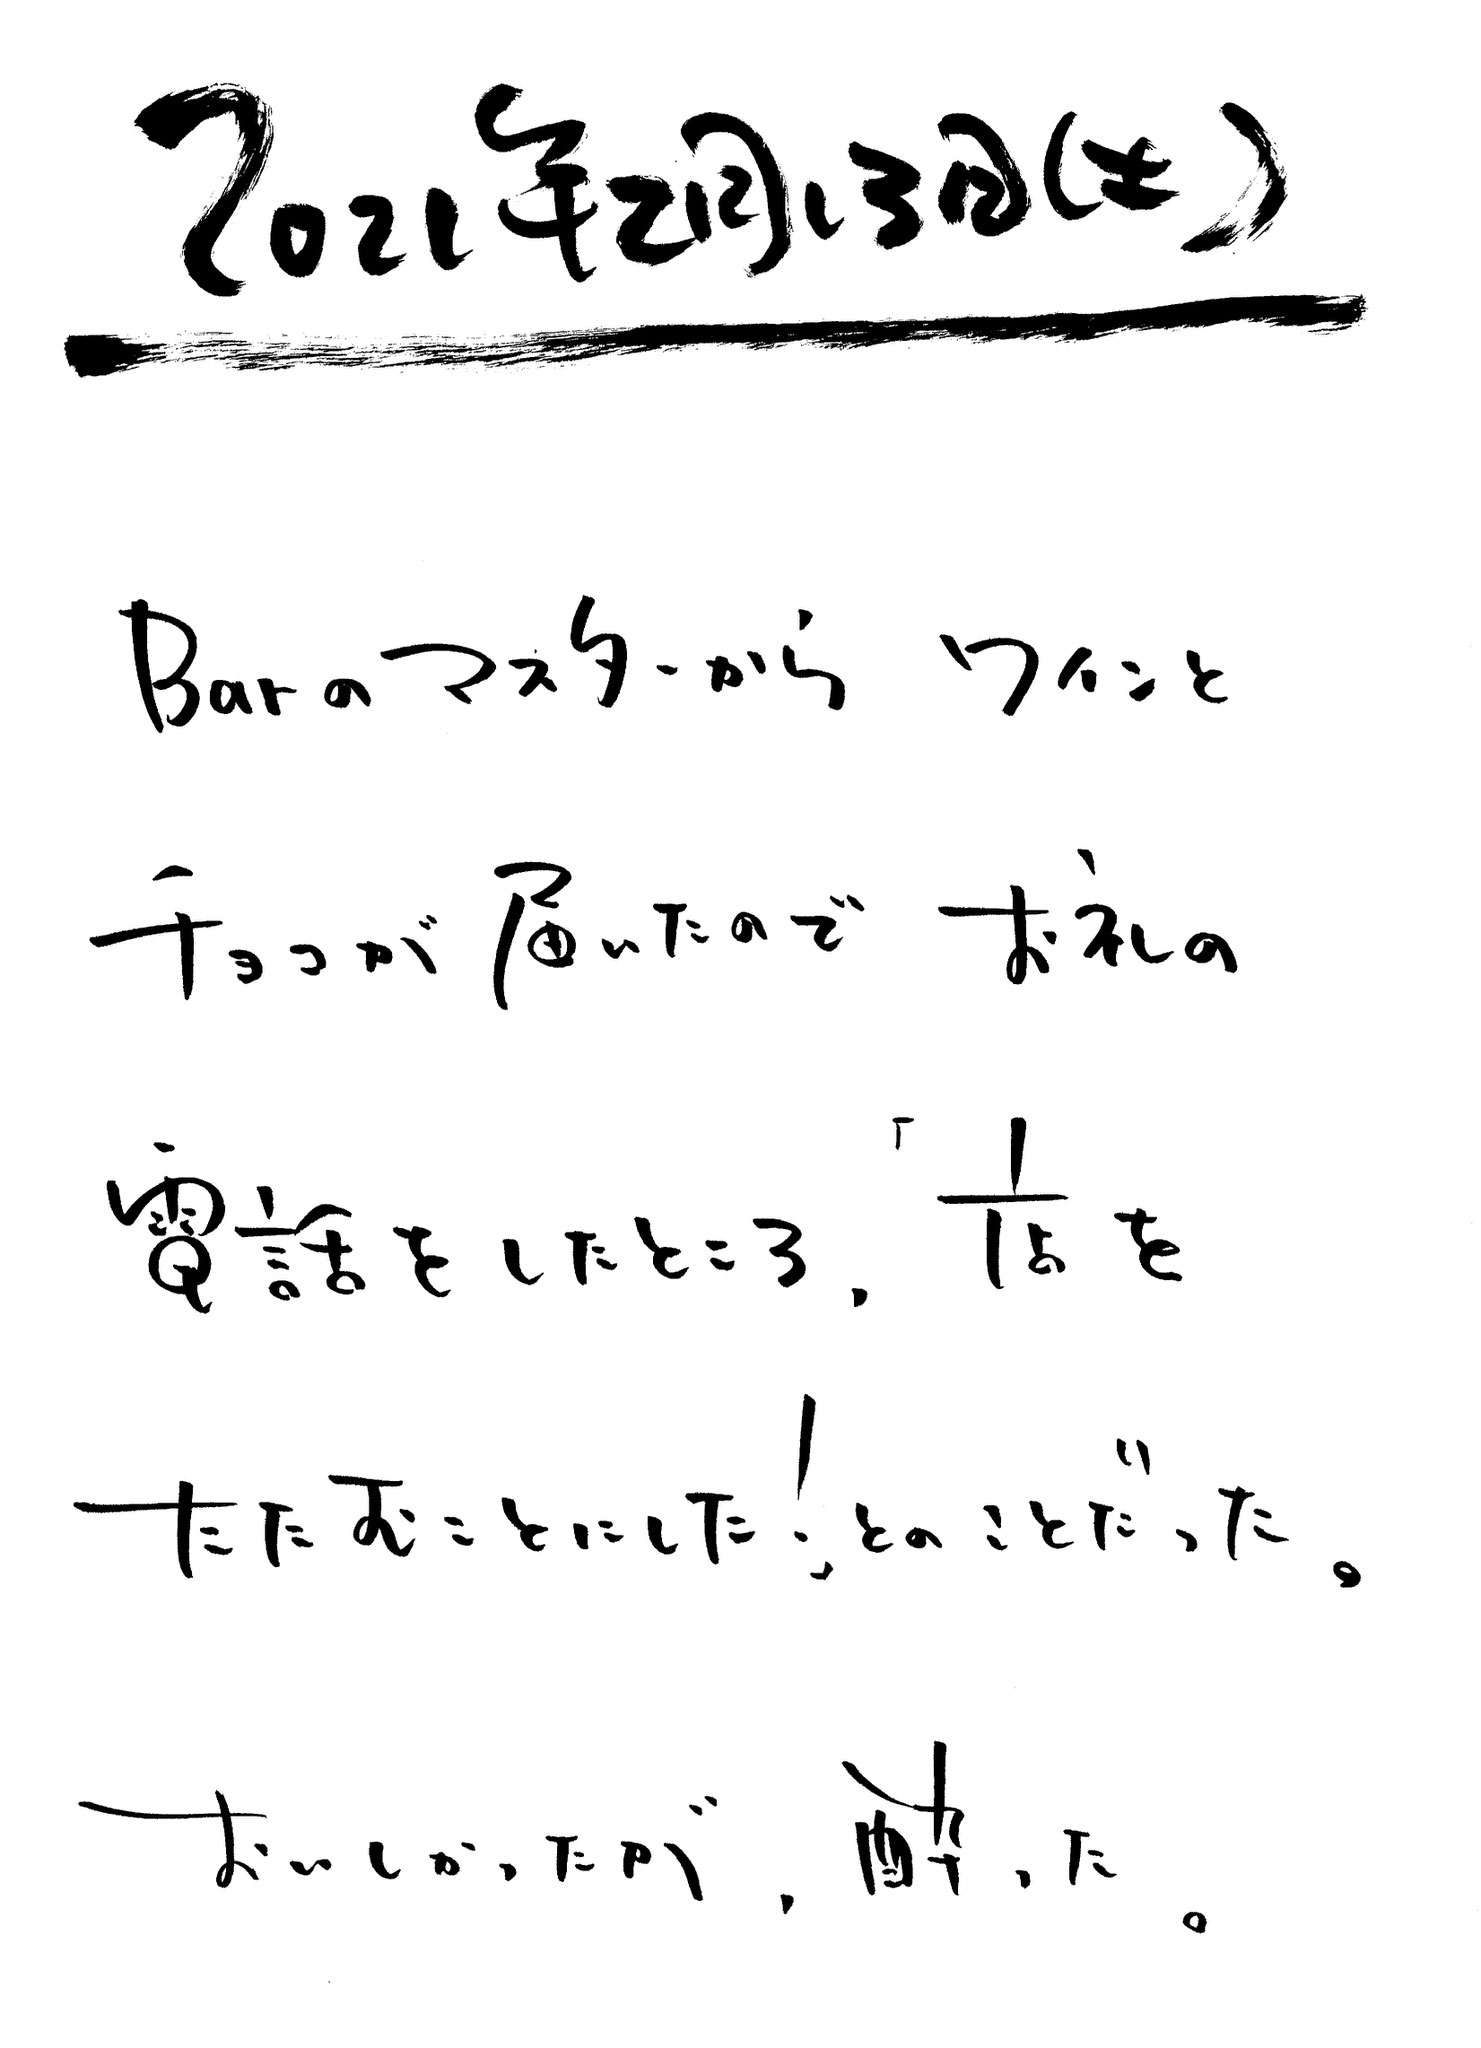 2021年2月13日(土)
Barのマスターからワインと
チョコが届いたのでお礼の
電話をしたところ、「店を
たたむことにした!」とのことだった。
おいしかったが、酔った。